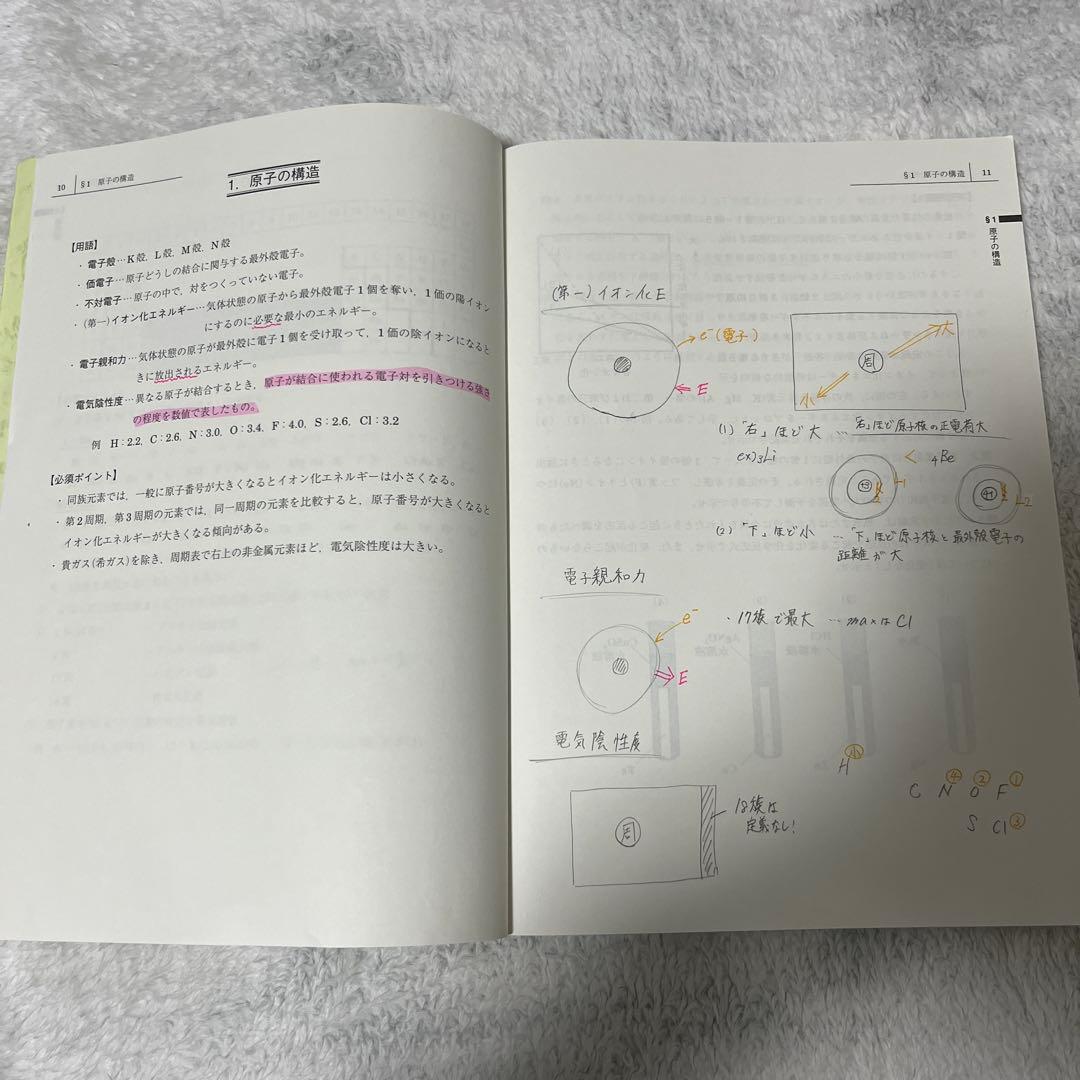 10 §1 原子の構造
1. 原子の構造
【用語】
・電子殻…K殻, L殻, M殻, N殻
・価電子…原子どうしの結合に関与する最外殻電子。
・不対電子…原子の中で, 対をつくっていない電子。
・(第一)イオン化エネルギー…気体状態の原子から最外殻電子1個を奪い, 1価の陽イオン
にするのに必要な最小のエネルギー。
・電子親和力…気体状態の原子が最外殻に電子1個を受け取って, 1価の陰イオンになると
きに放出されるエネルギー。
・電気陰性度…異なる原子が結合するとき, 原子が結合に使われる電子対を引きつける強さ
の程度を数値で表したもの。
例 H:2.2, C:2.6, N:3.0, O:3.4, F:4.0, S:2.6, Cl:3.2
【必須ポイント】
・同族元素では, 一般に原子番号が大きくなるとイオン化エネルギーは小さくなる。
・第2周期, 第3周期の元素では, 同一周期の元素を比較すると, 原子番号が大きくなると
イオン化エネルギーが大きくなる傾向がある。
・貴ガス(希ガス)を除き, 周期表で右上の非金属元素ほど, 電気陰性度は大きい。
§1 原子の構造 11
§1
原子の構造
(第一)イオン化E
e⁻(電子)
E
大
周
小
(1)「右」ほど大 …「右」ほど原子核の正電荷大
ex) ₃Li < ₄Be
(2)「下」ほど小 …「下」ほど原子核と最外殻電子の
距離が大
電子親和力
e⁻
E
・17族で最大 … maxはCl
電気陰性度
周
18族は
定義なし!
H小
C N④ O② F①
S Cl③